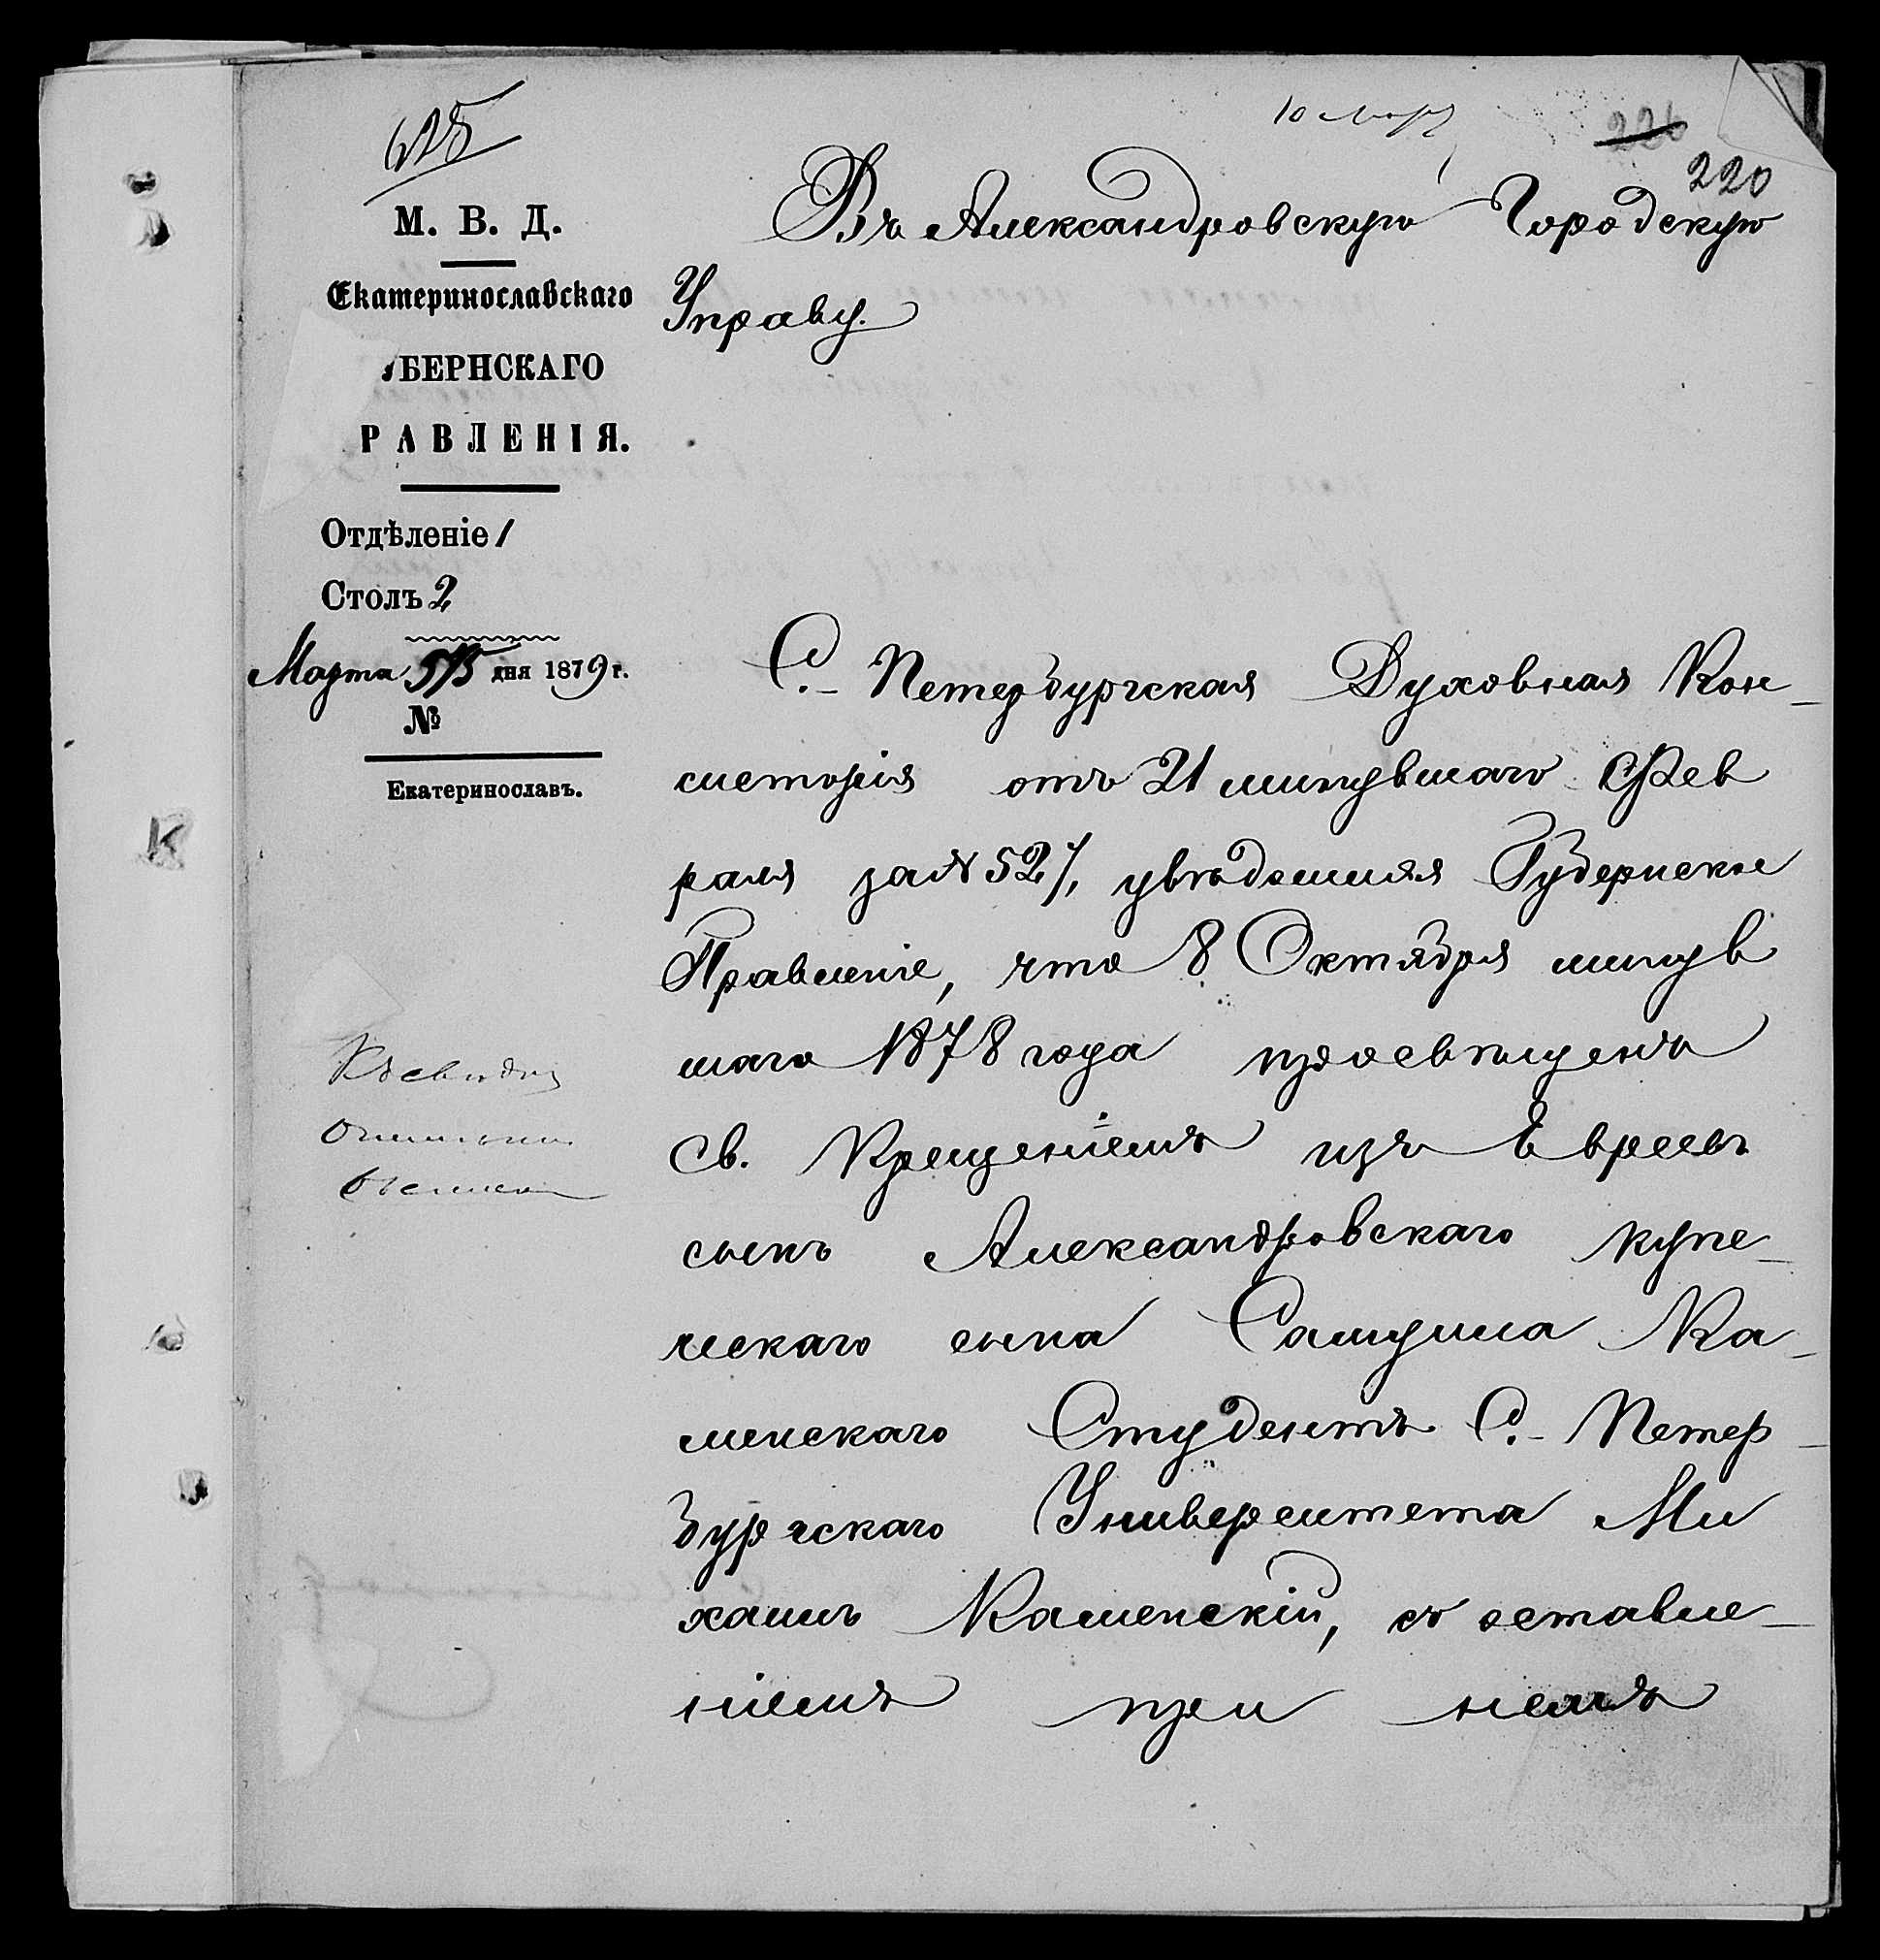 10 Мар
226
220
М. В. Д.
Екатеринославскаго
УБЕРНСКАГО
РАВЛЕНІЯ.
Отдѣленіе 1
Столъ 2
Марта дня 1879 г.
№
Екатеринославъ.
Въ Александровскую Городскую
Управу.
С.-Петербургская Духовная Кон-
систорія отъ 21 минувшаго Фев
раля за № 527, увѣдомила Губернское
Правленіе, что 8 Октября минув
шаго 1878 года просвѣщенъ
Св. Крещеніемъ изъ Евреевъ
сынъ Александровскаго купе-
ческаго сына Самуила Ка-
менскаго Студентъ С.-Петер-
бургскаго Университета Ми
хаилъ Каменскій, съ оставле-
ніемъ при немъ